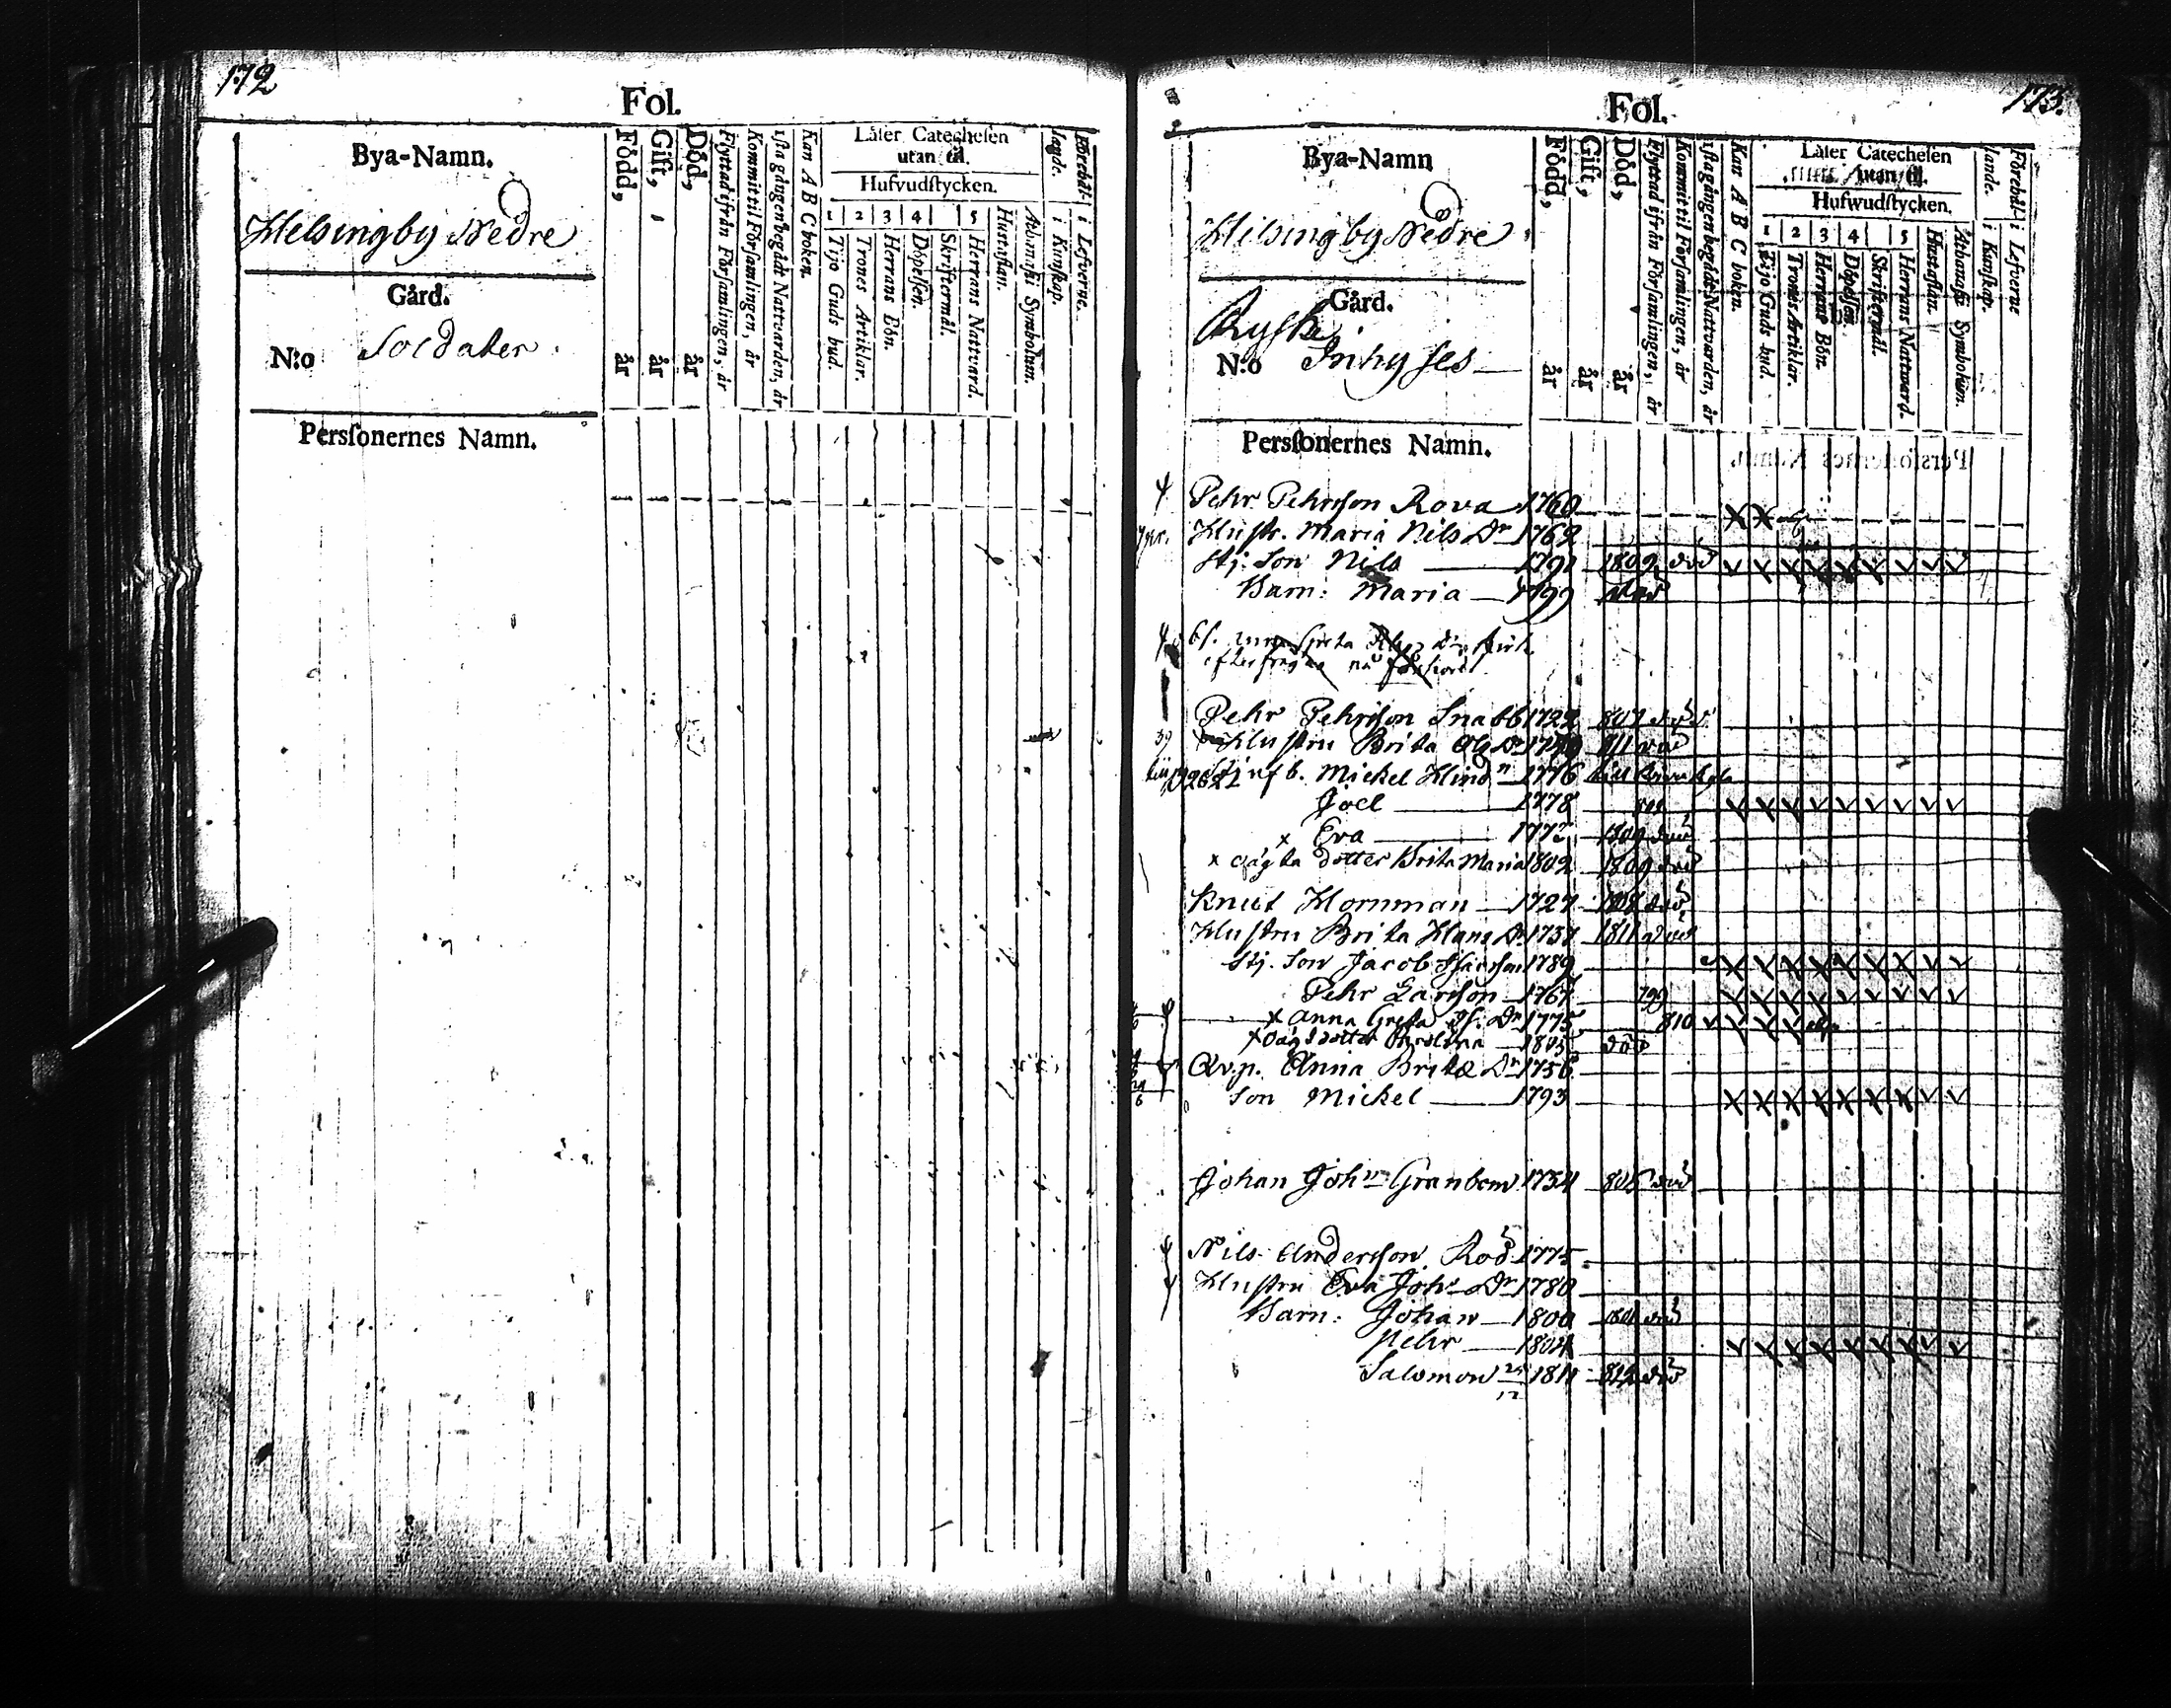 172
Fol.
Bya-Namn.
Helsingby Nedre
Gård.
N:o Soldater
Persſonernes Namn.
Född, år
Gift, år
Död, år
Flyttad ifrån Förſamlingen, år
Kommit til Förſamlingen, år
iſta gången begådt Nattvarden, år
Kan A B C boken.
Läſer Catecheſen
utan til.
Hufvudſtycken.
1 2 3 4 5
Tijo Guds bud.
Trones Artiklar.
Herrans Bön.
Döpelſen.
Skriftermål.
Herrans Nattvard.
Huſtaflan.
Athanaſii Symbolum.
i Kunſkap.
i Lefverne.
173.
Fol.
Bya-Namn
Helsingby Nedre
Gård.
Ryske
N:o Inhyses
Persſonernes Namn.
Född, år
Gift, år
Död, år
Flyttad ifrån Förſamlingen, år
Kommit til Förſamlingen, år
iſta gången begådt Nattvarden, år
Kan A B C boken.
Läſer Catecheſen
utan til.
Hufwudſtycken.
1 2 3 4 5
Tijo Guds bud.
Trones Artiklar.
Herrans Bön.
Döpelſen.
Skriftermål.
Herrans Nattward.
Huſtaflan.
Athanaſii Symbolum.
i Kunſkap.
i Lefverne
Pehr Pehrſson Rova 1760
Huſtr. Maria Nils Dr 1762
Stj. Son Nils 1791 1809 död
Barn: Maria 1799 död
Pehr Pehrſson Snabb 1722 807 död
Huſtru Brita 811 död
Mickel Hind 1776
Joel 1778
x Eva 1772 1809 död
x oägta dotter Brita Maria 1802 1809 död
Knut Hornman 1727 1808 död
Huſtru Brita Hans Dr 1737 1811 död
Stj. Son Jacob 1789
Pehr Larſson 1767 799
x Anna Greta Dr 1775 810
x oägt dotter 1805 död
Qv.p. Anna Brita Dr 1756
Son Mickel 1793
Johan John Granbom 1734 död
Nils Anderſson Röd 1775
Huſtru Eva Joh. Dr 1780
Barn: Johan 1800 1801 död
Pehr 1804
Salomon 1811 812 död